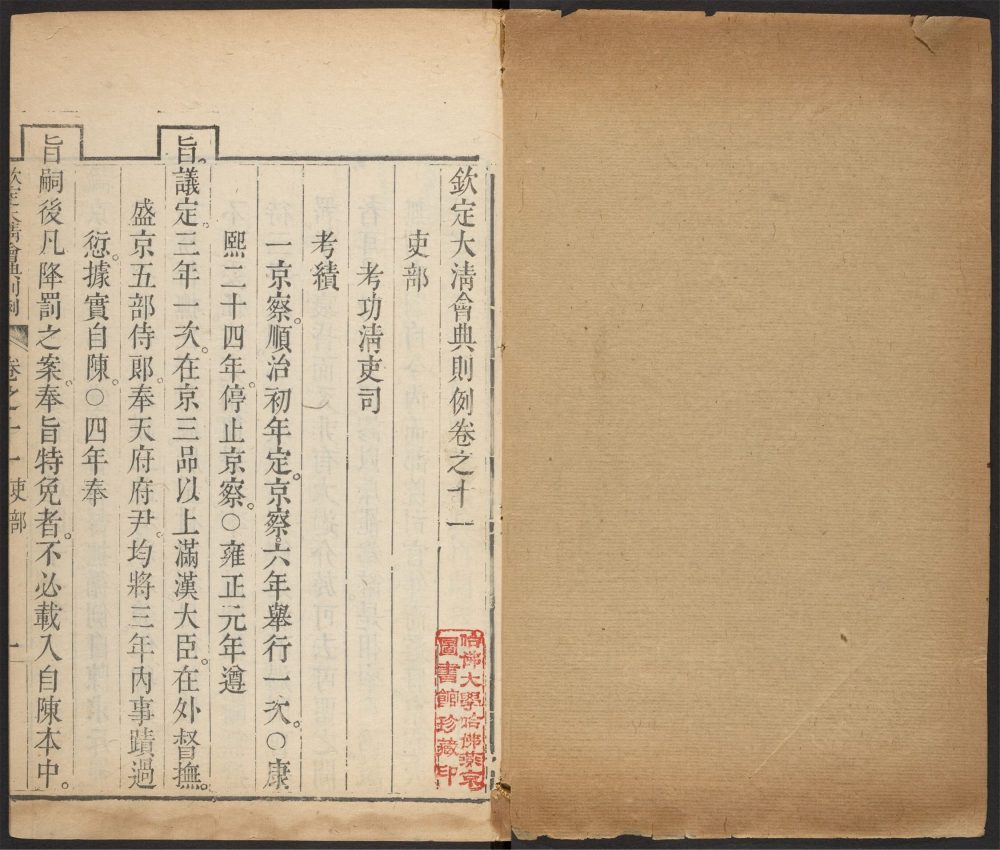 欽定大清會典則例卷之十一
吏部
考功清吏司
考績
一京察。順治初年定。京察。六年舉行一次。○康
熙二十四年。停止京察。○雍正元年遵
旨。議定。三年一次。在京三品以上滿漢大臣。在外督撫。
盛京五部侍郎。奉天府府尹。均將三年內事蹟過
愆。據實自陳。○四年奉
旨嗣後凡降罰之案。奉旨特免者。不必載入自陳本中。
欽定大清會典則例 卷之十一 吏部 一
哈佛大學哈佛燕京
圖書館珍藏印